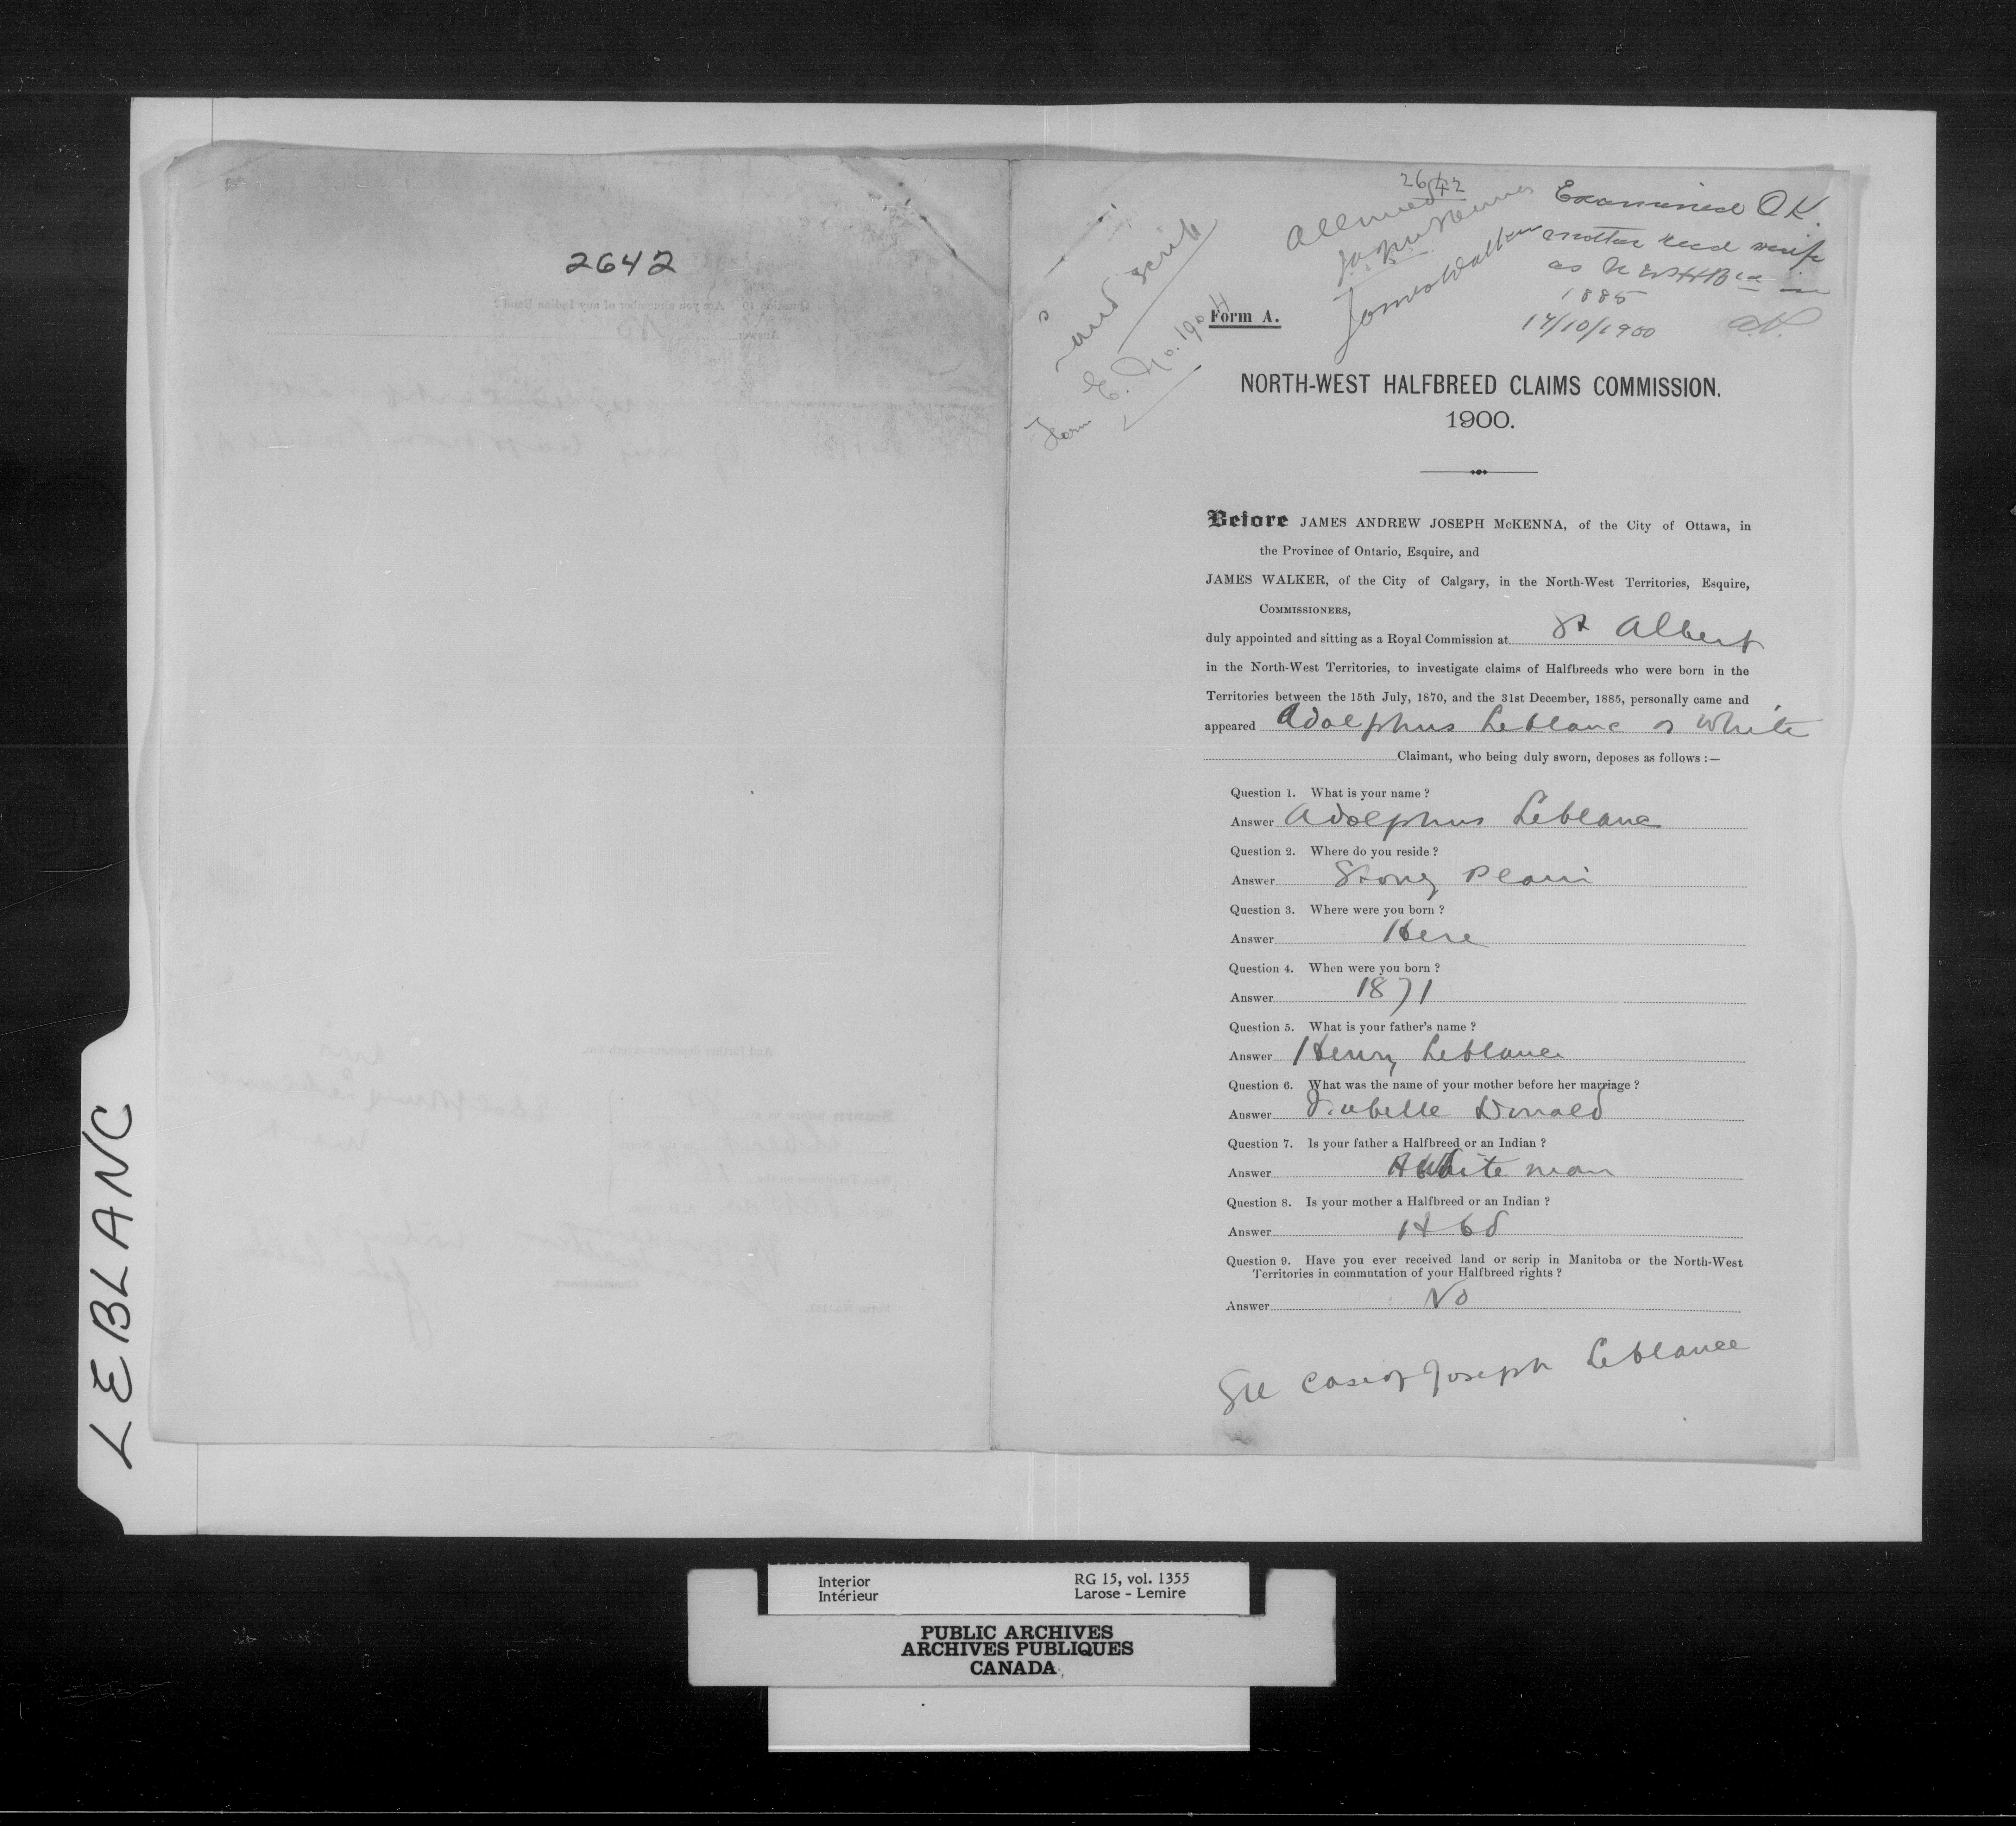 LEBLANC
2642
2642
Allowed
James Walker
Examined O.K.
another recd scrip
as N W H Bd in
1885
17/10/1900
Land Scrip
Form E. No. 1904
Form A.
NORTH-WEST HALFBREED CLAIMS COMMISSION.
1900.
Before JAMES ANDREW JOSEPH McKENNA, of the City of Ottawa, in
the Province of Ontario, Esquire, and
JAMES WALKER, of the City of Calgary, in the North-West Territories, Esquire,
COMMISSIONERS,
duly appointed and sitting as a Royal Commission at St Albert
in the North-West Territories, to investigate claims of Halfbreeds who were born in the
Territories between the 15th July, 1870, and the 31st December, 1885, personally came and
appeared Adolphus Leblanc or White
Claimant, who being duly sworn, deposes as follows :—
Question 1. What is your name ?
Answer Adolphus Leblanc
Question 2. Where do you reside ?
Answer Stony Plain
Question 3. Where were you born ?
Answer Here
Question 4. When were you born ?
Answer 1871
Question 5. What is your father's name ?
Answer Henry Leblanc
Question 6. What was the name of your mother before her marriage ?
Answer Isabelle Donald
Question 7. Is your father a Halfbreed or an Indian ?
Answer A White man
Question 8. Is your mother a Halfbreed or an Indian ?
Answer H bd
Question 9. Have you ever received land or scrip in Manitoba or the North-West
Territories in commutation of your Halfbreed rights ?
Answer No
See case of Joseph Leblance
Interior
Intérieur
RG 15, vol. 1355
Larose - Lemire
PUBLIC ARCHIVES
ARCHIVES PUBLIQUES
CANADA